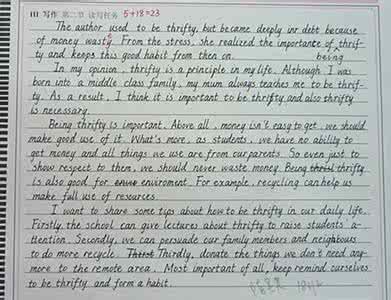 III 写作 第二节 读写任务 5+18=23
The author used to be thrifty, but became deeply inr debt because
of money wasty. From the stress, she realized the importante of thrif-
ty and keeps this good habit from then on. being
In my opinion, thrifty is a principle in my life. Although I was
born into a middle class family, my mum always teaches me to be thrif-
ty. As a result, I think it is important to be thrifty and also thrifty
is necessary.
Being thrifty is important. Above all, money isn't easy to get, we should
make good use of it. What's more, as students, we have no ability to
get money and all things we use are from our parents. So even just to
show respect to them, we should never waste money. Being thrifty
is also good for enviroment. For example, recycling can help us
make full use of resources.
I want to share some tips about how to be thrifty in our daily life.
Firstly, the school can give lectures about thrifty to raise students' a-
ttention. Secondly, we can persuade our family members and neighbours
to do more recycle. Thirdly, donate the things we don't need any-
more to the remote area. Most important of all, keep remind ourselves
to be thrifty and form a habit.